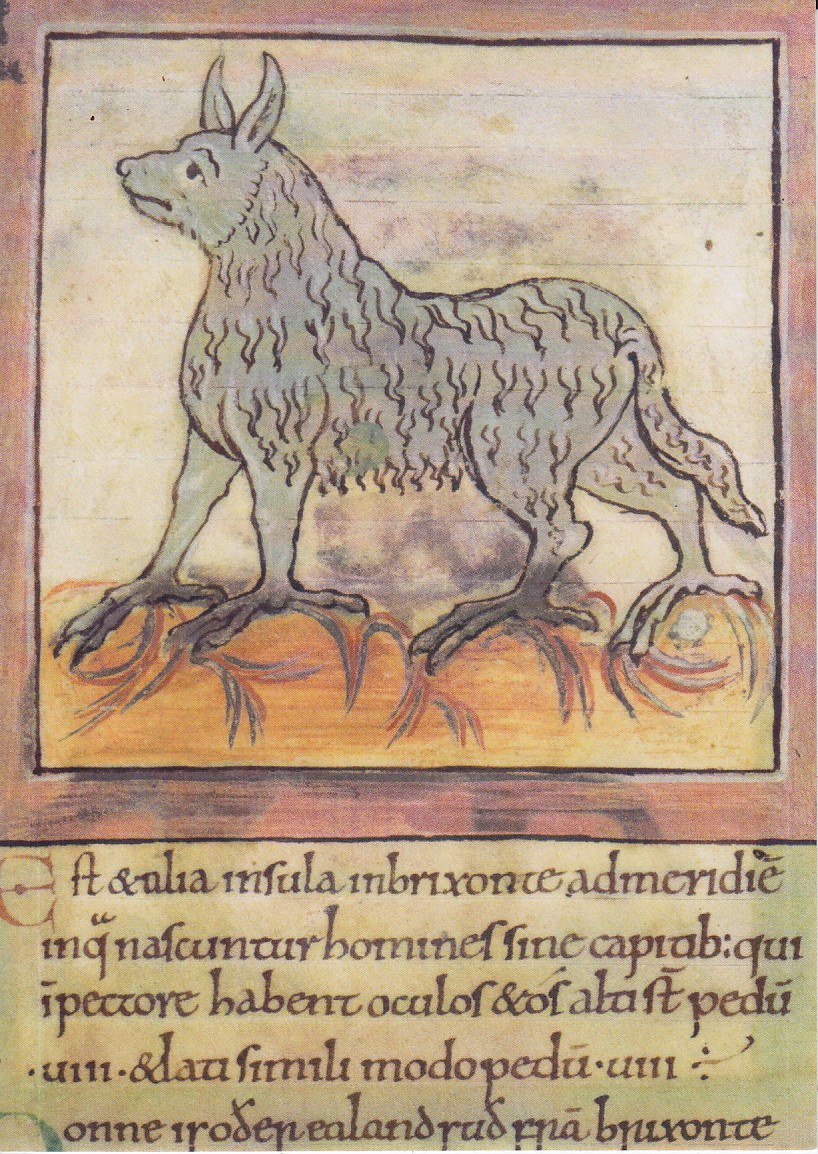 Est & alia insula inbrixonte admeridiē
inq̄ nascuntur homines sine capitib: qui
īpectore habent oculos & ós alti st̄ pedū
·uiii· & lati simili modo pedū ·uiii ÷
Ðonne is oðer ealand suð frā brixonte